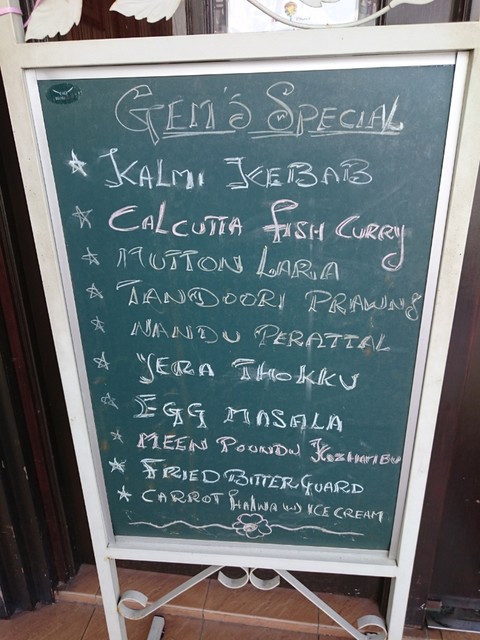 GEM'S SPECIAL
KALMI KEBAB
CALCUTTA FISH CURRY
MUTTON LARA
TANDOORI PRAWNS
NANDU PERATTAL
YERA THOKKU
EGG MASALA
MEEN POUNDU KOZHAMBU
FRIED BITTER GUARD
CARROT HALWA W/ ICE CREAM